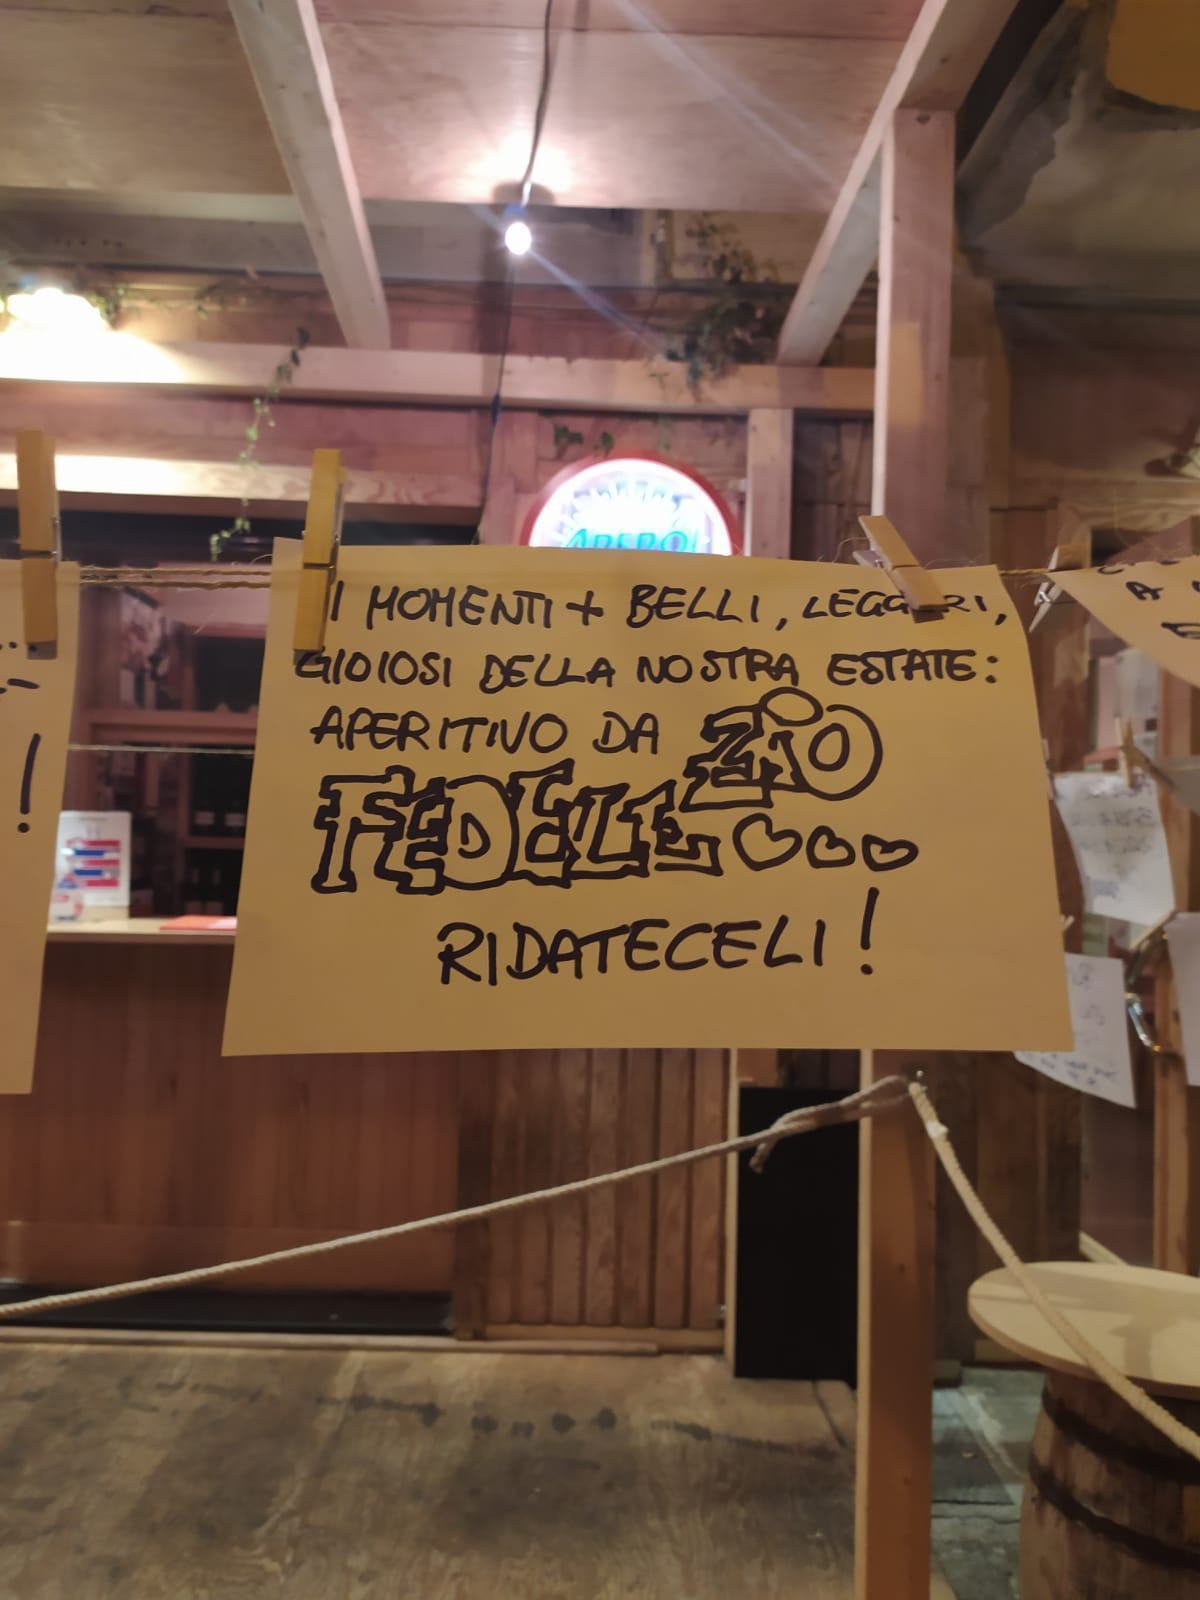 APEROL
I MOMENTI + BELLI, LEGGERI,
GIOIOSI DELLA NOSTRA ESTATE:
APERITIVO DA ZIO
FEDELE
RIDATECELI!